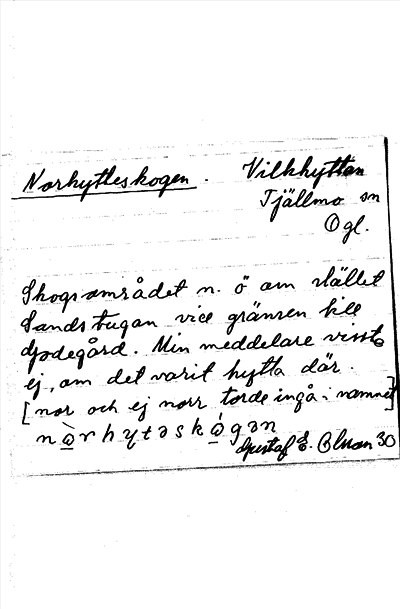 Norhytteskogen.
Vilkhyttan
Tjällmo sn
Ögl.
Skogsområdet n. ö om stället
Sandstugan vid gränsen till
Godegård. Min meddelare visste
ej, om det varit hytta där.
[nor och ej norr torde ingå i namnet]
nòrhytəskógən
Gustaf E. Olsson 30